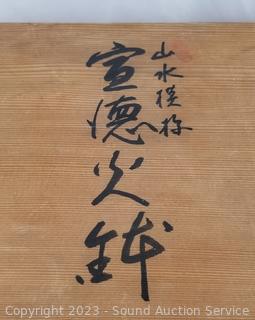 山水模様
宣德火鉢
Copyright 2023 - Sound Auction Service